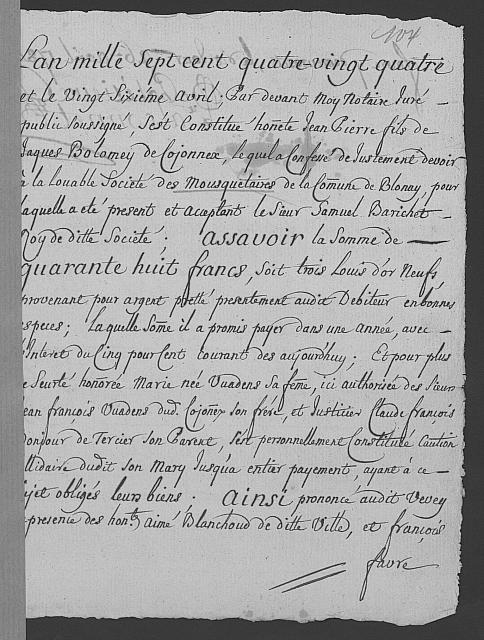 104
L'an mille Sept cent quatre-vingt quatre
et le Vingt Sixieme Avril; Par devant Moy Notaire Juré -
public Soussigné, S'est Constitué hoñete Jean Pierre fils de
Jaques Bolomey de Cojonnex, le quel a Confessé de Justement devoir
à la louable Societé des Mousquetaires de la Comune de Blonay, pour
laquelle a eté present et aceptant le Sieur Samuel Barichet -
Roy de ditte Societé; ASSAVOIR la Somme de —
quarante huit francs, Soit trois Louis d'or Neufs,
provenant pour argent pretté presentement audit Debiteur en bonnes
especes; laquelle Sõme il a promis payer dans une année, avec -
l'Interet du Cinq pour Cent courant des aujourd'huy; Et pour plus
de Seurté honorée Marie née Vuadens Sa feme, ici authorisée des Sieurs
Jean François Vuadens dud. Cojoñex son frére, et Justicier Claude François
Bonjour de Tercier Son Parent, S'est personnellement Constituée Caution
solidaire dudit Son Mary Jusqu'a entier payement, ayant à ce -
sujet obligés leurs biens. AINSI prononcé audit Vevey
presence des hon.ts Aimé Blanchoud de ditte Ville, et François
favre